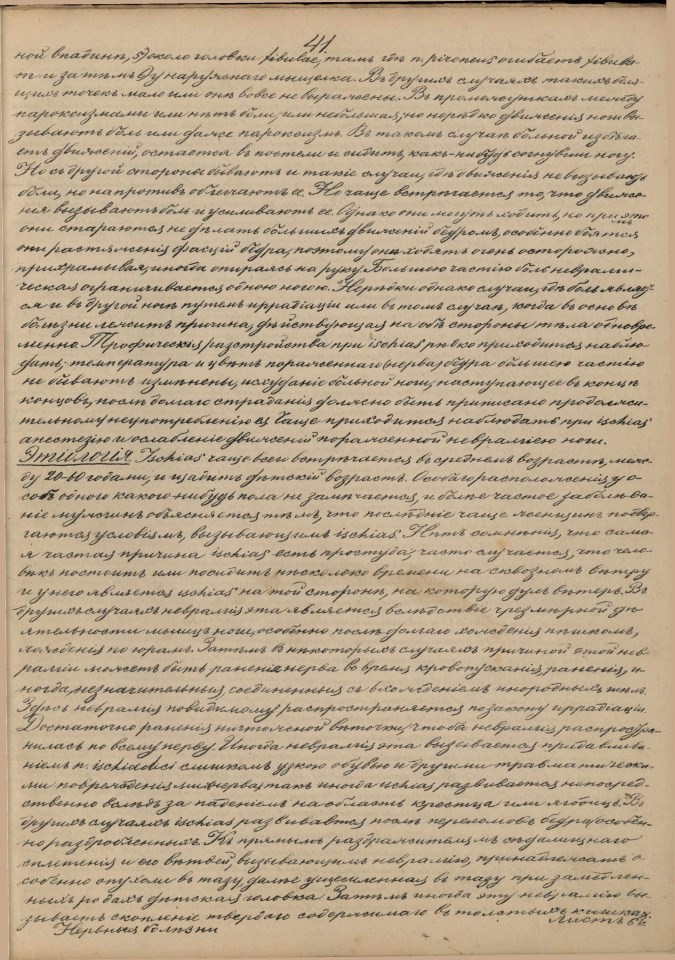 41.
ной впадинѣ, 5) около головки fibulae, тамъ гдѣ n. peroneus огибаетъ fibulu-
m и затѣмъ 6) у наружнаго мыщелка. Въ другихъ случаяхъ такихъ боля-
щихъ точекъ мало или онѣ вовсе не выражены. Въ промежуткахъ между
пароксизмами или нѣтъ боли, или небольшая, но нерѣдко движенія ноги вы-
зываютъ боль или даже пароксизмъ. Въ такомъ случаѣ больной избѣга-
етъ движеній, остается въ постели и сидитъ, какъ-нибудь согнувши ногу.
Но съ другой стороны бываютъ и такіе случаи, гдѣ движенія не вызываютъ
боли, но напротивъ облегчаютъ ее. Но чаще встрѣчается то, что движе-
нія вызываютъ боль и усиливаютъ ее. Однако они могутъ ходить, но при этомъ
они стараются не дѣлать большихъ движеній бедромъ, особенно боятся
они растяженія фасцій бедра, поэтому они ходятъ очень осторожно,
прихрамывая, иногда опираясь на руку. Большою частію боль невралги-
ческая ограничивается одною ногою. Нерѣдки однако случаи, гдѣ боль являет-
ся и въ другой ногѣ путемъ иррадіаціи или въ томъ случаѣ, когда въ основѣ
болѣзни лежитъ причина, дѣйствующая на обѣ стороны тѣла одновре-
менно. Трофическія разстройства при ischias рѣдко приходится наблю-
дать; температура и цвѣтъ пораженнаго (нерва) бедра большею частію
не бываютъ измѣнены, исхуданіе больной ноги, наступающее въ концѣ
концовъ, послѣ долгаго страданія должно быть приписано продолжи-
тельному неупотребленію ея. Чаще приходится наблюдать при ischias
анестезію и ослабленіе движеній пораженной невралгіею ноги.
Этіологія. Ischias чаще всего встрѣчается въ среднемъ возрастѣ, меж-
ду 20-60 годами, и щадитъ дѣтскій возрастъ. Особаго расположенія у о-
собъ одного какого нибудь пола не замѣчается, и болѣе частое заболѣва-
ніе мужчинъ объясняется тѣмъ, что послѣдніе чаще женщинъ подвер-
гаются условіямъ, вызывающимъ ischias. Нѣтъ сомнѣнія, что сама-
я частая причина ischias есть простуда: часто случается, что чело-
вѣкъ постоитъ или посидитъ нѣсколько времени на сквозномъ вѣтру
и у него является ischias на той сторонѣ, на которую дулъ вѣтеръ. Въ
другихъ случаяхъ невралгія эта является вслѣдствіе чрезмѣрной дѣ-
ятельности мышцъ ноги, особенно послѣ долгаго хожденія пѣшкомъ,
хожденія по горамъ. Затѣмъ въ нѣкоторыхъ случаяхъ причиной этой нев-
ралгіи можетъ быть раненіе нерва во время кровопусканія, раненія, и-
ногда, незначительныя, соединенныя съ вхожденіемъ инородныхъ тѣлъ.
Здѣсь невралгія повидимому распространяется по закону иррадіаціи.
Достаточно раненія ничтожной вѣточки, чтобъ невралгія распростра-
нилась по всему нерву. Иногда невралгія эта вызывается придавлива-
ніемъ n. ischiadici слишкомъ узкою обувью и другими травматически-
ми поврежденіями нерва; такъ иногда ischias развивается непосред-
ственно вслѣдъ за паденіемъ на область крестца или ягодицъ. Въ
другихъ случаяхъ ischias развивается послѣ переломовъ бедра, особен-
но раздробленныхъ. Къ прямымъ раздражителямъ сѣдалищнаго
сплетенія и его вѣтвей, вызывающимъ невралгію, принадлежатъ о-
собенно опухоли въ тазу, далѣе ущемленная въ тазу при замедлен-
ныхъ родахъ дѣтская головка. Затѣмъ иногда эту невралгію вы-
зываетъ скопленіе твердаго содержимаго въ толстыхъ кишкахъ.
Нервныя болѣзни
Листъ 6й